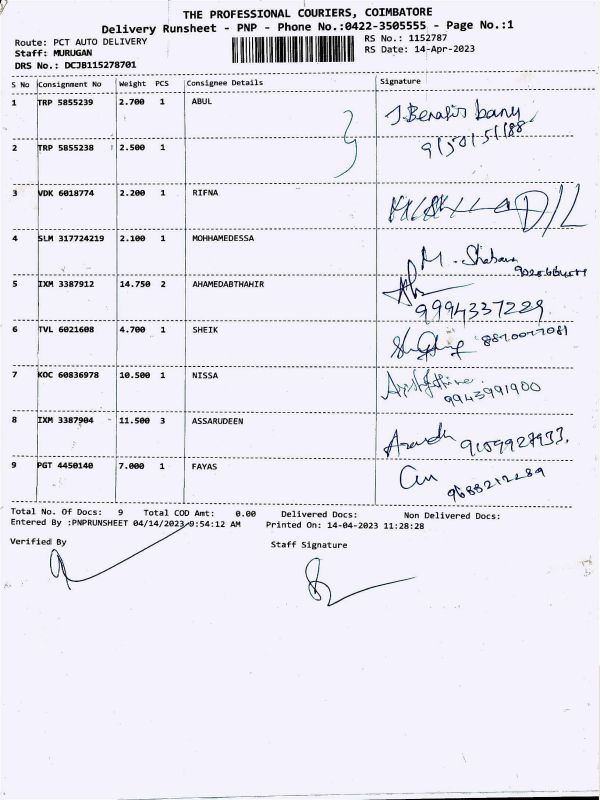 THE PROFESSIONAL COURIERS, COIMBATORE
Delivery Runsheet - PNP - Phone No.:0422-3505555 - Page No.:1
Route: PCT AUTO DELIVERY RS No.: 1152787
Staff: MURUGAN RS Date: 14-Apr-2023
DRS No.: DCJB115278701
S No Consignment No Weight PCS Consignee Details Signature
1 TRP 5855239 2.700 1 ABUL
9150151188
2 TRP 5855238 2.500 1
3 VDK 6018774 2.200 1 RIFNA
4 SLM 317724219 2.100 1 MOHHAMEDESSA
M.
5 IXM 3387912 14.750 2 AHAMEDABTHAHIR
9994337229
6 TVL 6021608 4.700 1 SHEIK
7 KOC 60836978 10.500 1 NISSA
9943991900
8 IXM 3387904 11.500 3 ASSARUDEEN
9 PGT 4450140 7.000 1 FAYAS
9688212289
Total No. Of Docs: 9 Total COD Amt: 0.00 Delivered Docs: Non Delivered Docs:
Entered By :PNPRUNSHEET 04/14/2023 9:54:12 AM Printed On: 14-04-2023 11:28:28
Verified By Staff Signature